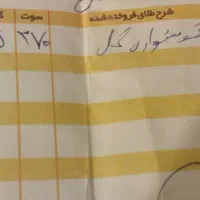 شرح طلای فروخته شده سوت
گوشواره گل ۳۷۰